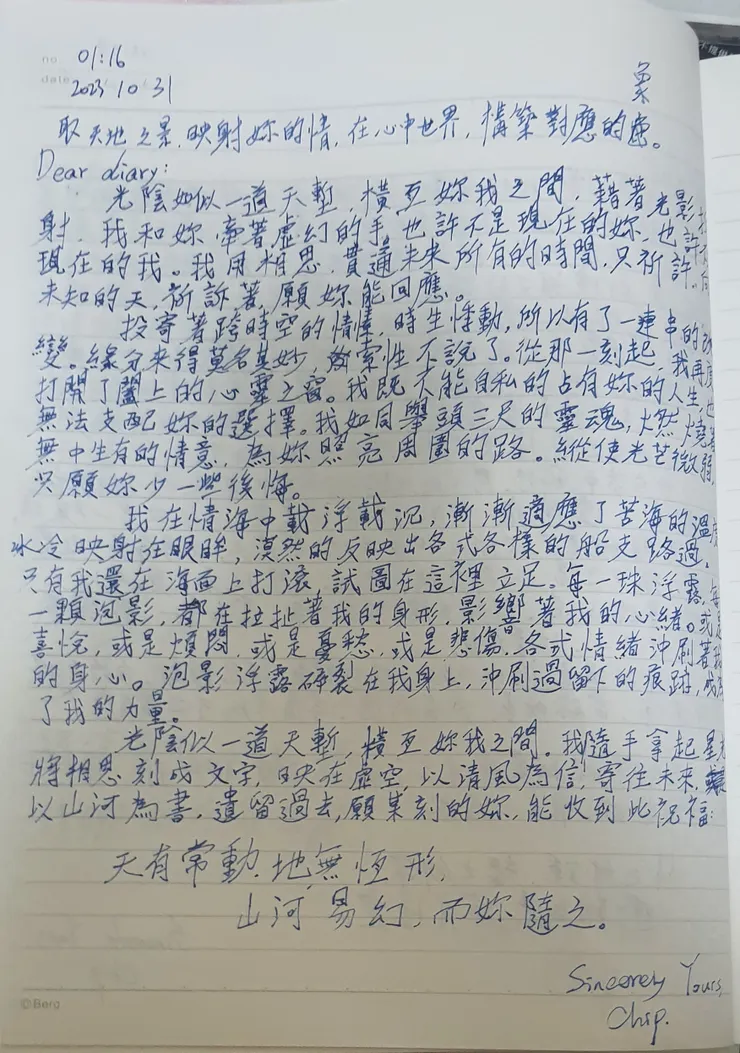 no 01:16
date 2023 10 31
取天地之景,映射妳的情,在心中世界,構築對應的
Dear diary:
光陰如似一道天塹,橫亙妳我之間,藉著光影
射,我和妳牽著虛幻的手,也許不是現在的妳,也許
現在的我。我用相思,貫通未來所有的時間,只祈許
未知的天,祈訴著,願妳能回應。
投寄著跨時空的情愫,時生悸動,所以有了一連串的
變。緣分來得莫名其妙,故索性不說了。從那一刻起,我再
打開了闔上的心靈之窗。我既不能自私的占有妳的人生,也
無法支配妳的選擇。我如同舉頭三尺的靈魂,燃燒
無中生有的情意,為妳照亮周圍的路。縱使光芒微弱
只願妳少一些後悔。
我在情海中載浮載沉,漸漸適應了苦海的溫
冰冷映射在眼眸,漠然的反映出各式各樣的船支路過。
只有我還在海面上打滾,試圖在這裡立足。每一珠浮露,每
一顆泡影,都在拉扯著我的身形,影響著我的心緒。或是
喜悅,或是煩悶,或是憂愁,或是悲傷,各式情緒沖刷著我
的身心。泡影浮露碎裂在我身上,沖刷過留下的痕跡,成
了我的力量。
光陰似一道天塹,橫亙妳我之間。我隨手拿起星光
將相思刻成文字,映在虛空,以清風為信,寄往未來,
以山河為書,遺留過去,願某刻的妳,能收到此祝福:
天有常動,地無恆形,
山河易幻,而妳隨之。
Sincerey Yours,
Chip.
©Berg